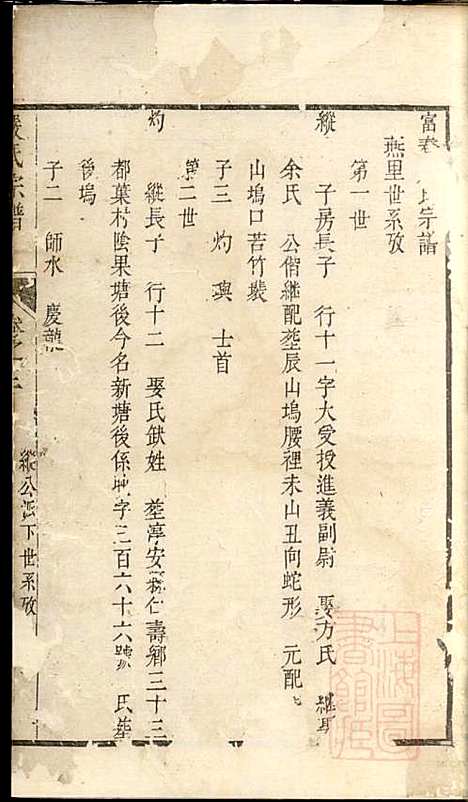 富春 氏宗譜
燕里世系攷
第一世
縱 子房長子 行十一字大受授進義副尉 娶方氏 繼
余氏 公偕繼配塟辰山塢腰裡未山丑向蛇形 元配
山塢口苦竹塢
子三 灼 璵 士首
第二世
灼 縱長子 行十二 娶氏缺姓 塟淳安 仁壽鄉三十三
都葉村陰果塘後今名新塘後係地字三百六十六號 氏塟
後塢
子二 師水 慶
氏宗譜 卷之 縱公派下世系攷
上海圖書館藏